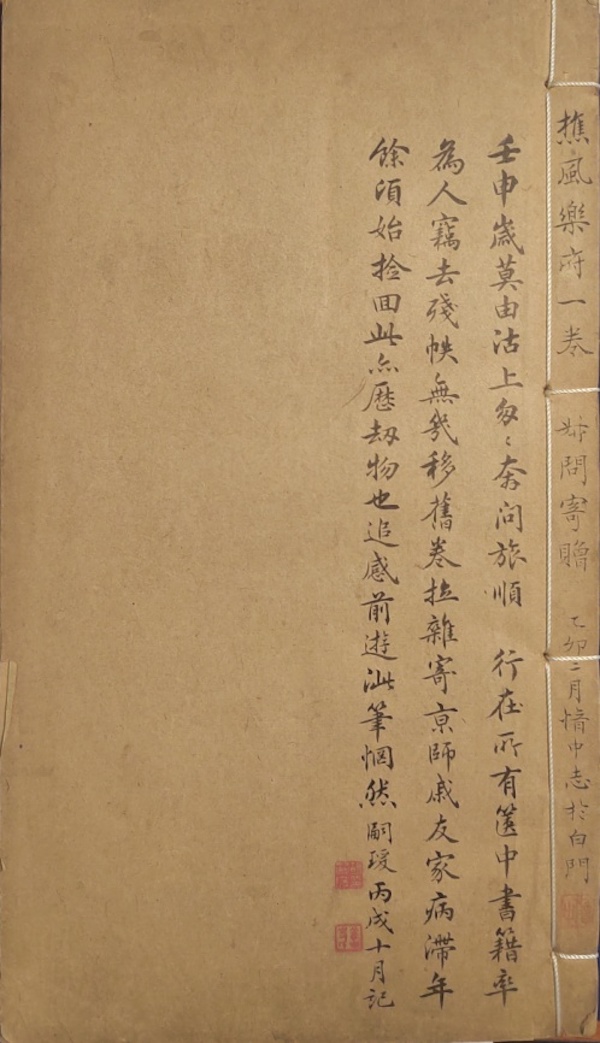 樵風樂府一卷 叔問寄贈 乙卯二月愔中志於白門
壬申歲莫由沽上匆〻奔问旅順 行在所有篋中書籍率
為人竊去殘帙無幾移舊卷拉雜寄京師戚友家病滯年
餘須始撿回此亦歷劫物也追感前遊泚筆惘然嗣瑗丙戌十月記